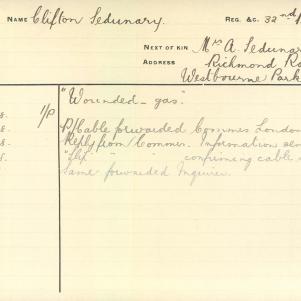 NAME Clifton Sedunary. REG. &C. 32nd
NEXT OF KIN Mrs A. Sedunar
ADDRESS Richmond Ro
Westbourne Park
"Wounded - gas".
1/P
P/Cable forwarded Commrs London
Reply from Commr. Information
confirming cable
Same forwarded Inquirer.